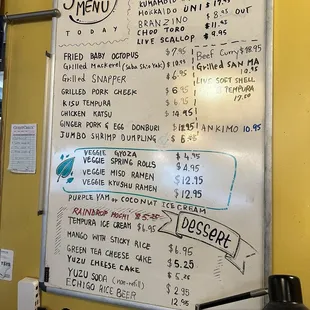 MENU
TODAY
HOKKAIDO UNI $17.95
BRANZINO $8.95 OUT
CHOO TORO $11.95
LIVE SCALLOP $9.95
FRIED BABY OCTOPUS $7.95
Grilled Mackerel (Saba Shio Yaki)
Grilled SNAPPER
GRILLED PORK CHEEK
KISU TEMPURA
CHICKEN KATSU $14.95
GINGER PORK & EGG DONBURI $18.95
JUMBO SHRIMP DUMPLING
Beef Curry $18.95
Grilled SANMA
LIVE SOFT SHELL
TEMPURA
17.00
ANKIMO 10.95
VEGGIE GYOZA $4.95
VEGGIE SPRING ROLLS $4.95
VEGGIE MISO RAMEN $12.95
VEGGIE KYUSHU RAMEN $12.95
PURPLE YAM or COCONUT ICE CREAM
RAINDROP MOCHI $5.25
TEMPURA ICE CREAM $6.95
Dessert
MANGO WITH STICKY RICE $6.95
GREEN TEA CHEESE CAKE $5.25
YUZU CHEESE CAKE $5.25
YUZU SODA (non-refill) $2.95
ECHIGO RICE BEER 12.95